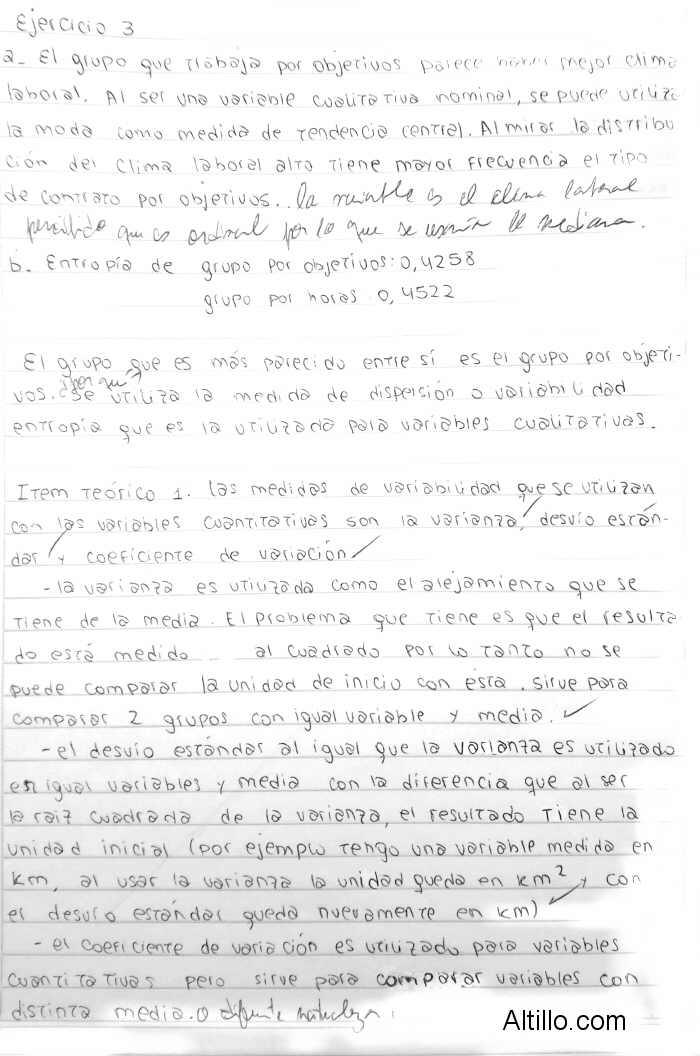 Ejercicio 3
a- El grupo que trabaja por objetivos parece tener mejor clima
laboral. Al ser una variable cualitativa nominal, se puede utiliza
la moda como medida de tendencia central. Al mirar la distribu
ción del clima laboral alto tiene mayor frecuencia el tipo
de contrato por objetivos. La variable es el clima laboral
percibido que es ordinal por lo que se usaría la mediana.
b. Entropía de grupo por objetivos: 0,4258
grupo por horas 0,4522
El grupo que es más parecido entre sí es el grupo por objeti-
¿por qué?
vos. Se utiliza la medida de dispersión o variabilidad
entropía que es la utilizada para variables cualitativas.
Item teórico 1. Las medidas de variabilidad que se utilizan
con las variables cuantitativas son la varianza, desvío están-
dar y coeficiente de variación
- la varianza es utilizada como el alejamiento que se
tiene de la media. El problema que tiene es que el resulta
do está medido al cuadrado por lo tanto no se
puede comparar la unidad de inicio con esta. Sirve para
comparar 2 grupos con igual variable y media.
- el desvío estándar al igual que la varianza es utilizado
en igual variables y media con la diferencia que al ser
la raiz cuadrada de la varianza, el resultado tiene la
unidad inicial (por ejemplo tengo una variable medida en
km, al usar la varianza la unidad queda en km² y con
el desvío estándar queda nuevamente en km)
- el coeficiente de variación es utilizado para variables
cuantitativas pero sirve para comparar variables con
distinta media. o diferente naturaleza.
Altillo.com